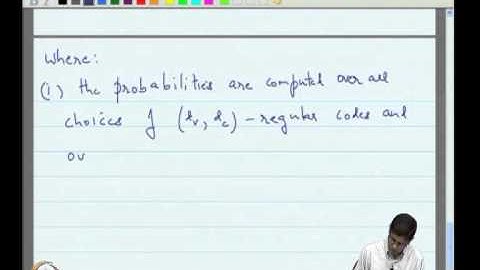 Where:
(1) the probabilities are computed over all
choices of (dv, dc) - regular codes and
ov